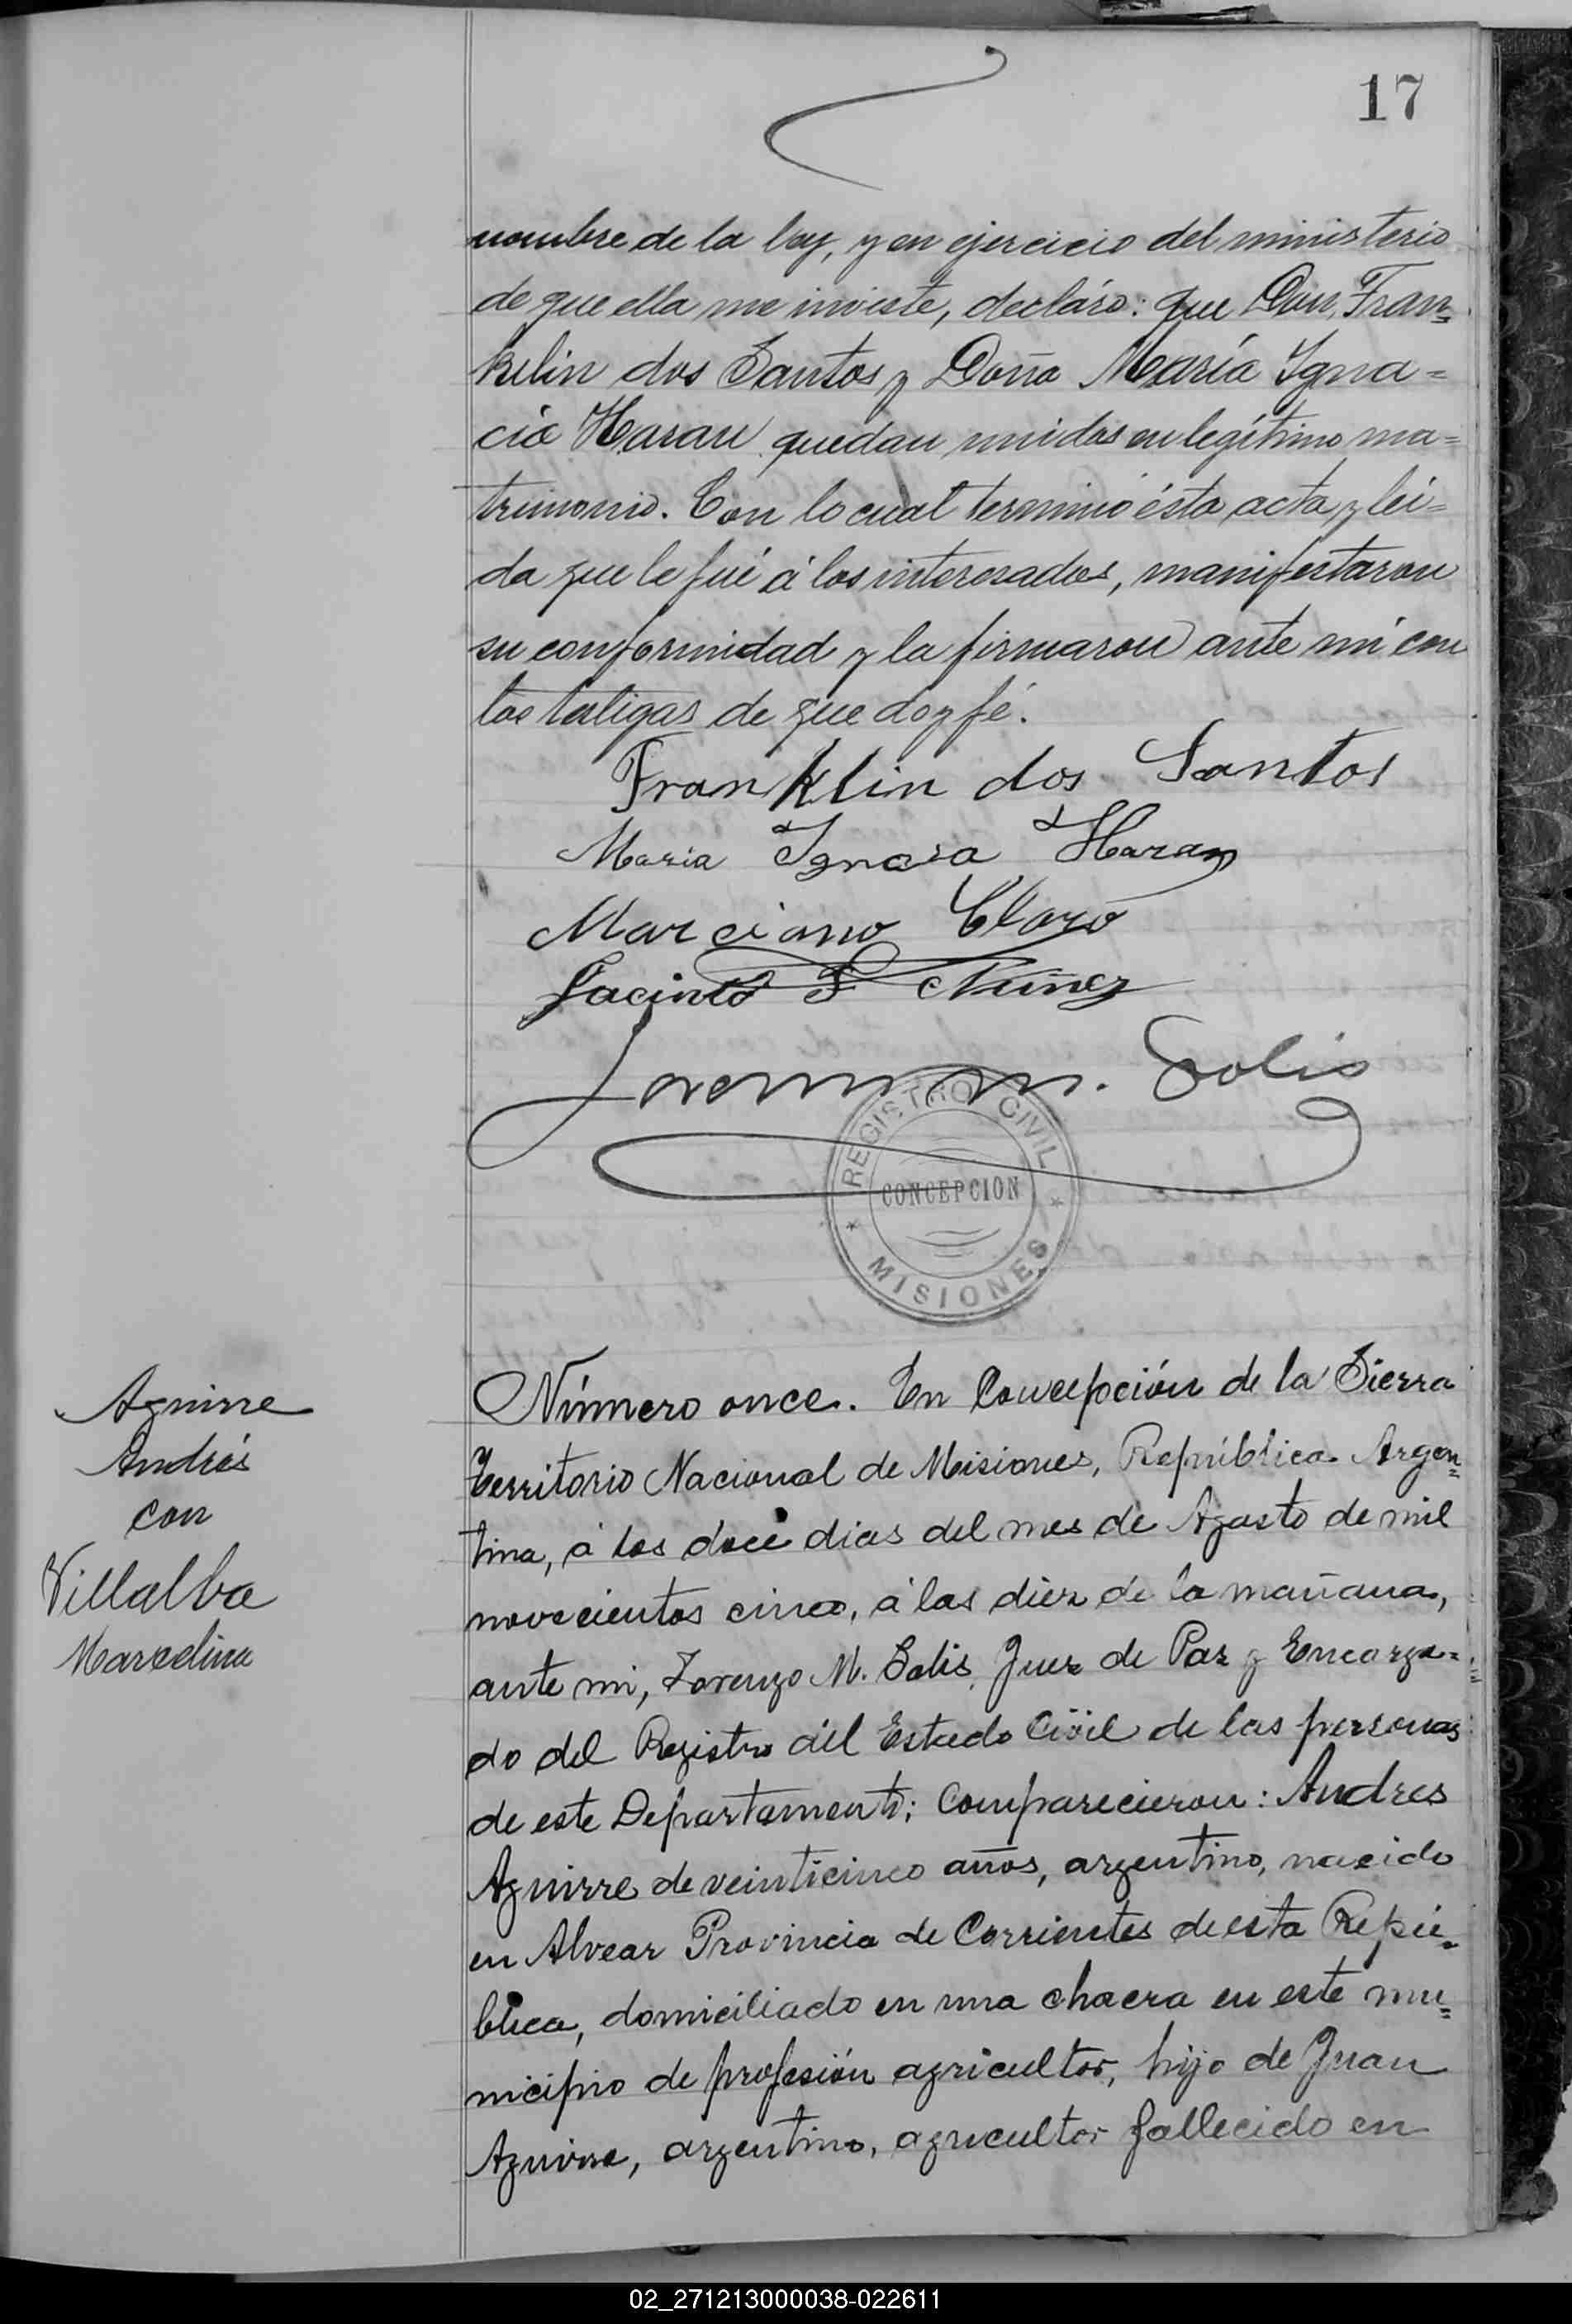 17
nombre de la ley, y en ejercicio del ministerio
de que ella me inviste, decláro: que Don Fran=
kelin dos Santos y Doña María Igna=
cia Haran quedan unidos en legítimo ma=
trimonio. Con lo cual terminó ésta acta, y lei=
da que le fué á los interesados, manifestaron
su conformidad y la firmaron ante mí con
los testigos de que doy fé.
Franklin dos Santos
Maria Ignasa Haran
Marciano Claro
Jacinto F Núñez
Lorenzo M. Solis
REGISTRO CIVIL
CONCEPCION
MISIONES
Aguirre
Andrés
con
Villalba
Marcelina
Número once. En Concepción de la Sierra
Territorio Nacional de Misiones, República Argen=
tina, á los doce dias del mes de Agosto de mil
novecientos cinco, á las diez de la mañana,
ante mi, Lorenzo M. Solis, Juez de Paz y Encarga=
do del Registro del Estado Civil de las personas
de este Departamento; Comparecieron: Andres
Aguirre de veinticinco años, argentino, nacido
en Alvear Provincia de Corrientes de esta Repú=
blica, domiciliado en una chacra en este mu=
nicipio de profesión agricultor, hijo de Juan
Aguirre, argentino, agricultor fallecido en
02_271213000038-022611